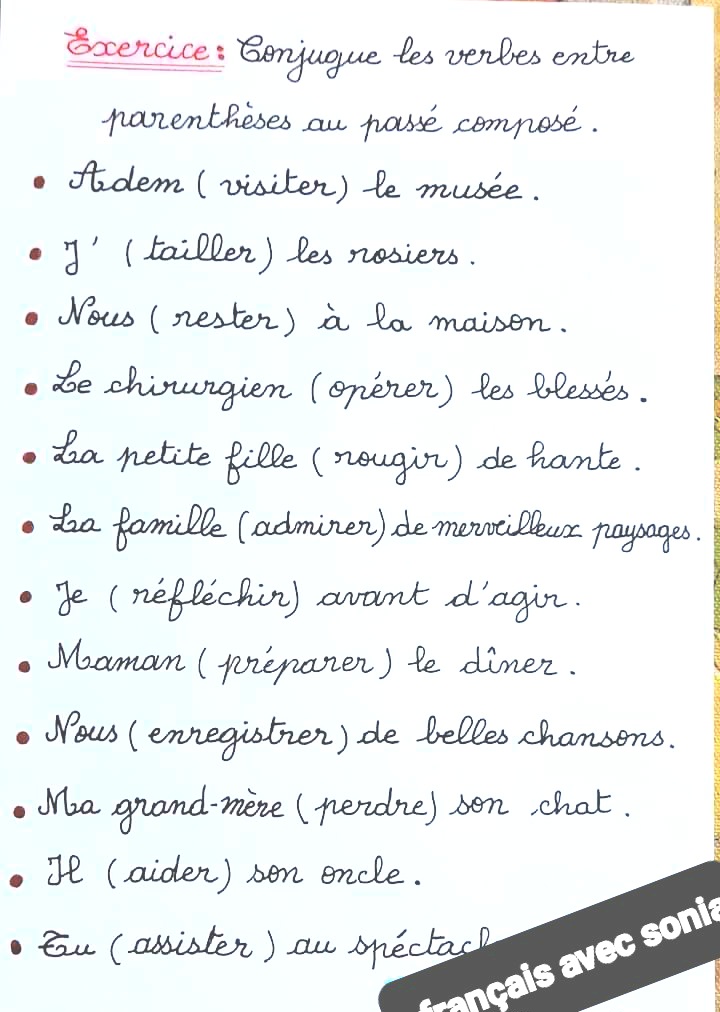 Exercice : Conjugue les verbes entre
parenthèses au passé composé.
• Adem ( visiter ) le musée.
• J' ( tailler ) les rosiers.
• Nous ( rester ) à la maison.
• Le chirurgien ( opérer ) les blessés.
• La petite fille ( rougir ) de hante.
• La famille ( admirer ) de merveilleux paysages.
• Je ( réfléchir ) avant d'agir.
• Maman ( préparer ) le dîner.
• Nous ( enregistrer ) de belles chansons.
• Ma grand-mère ( perdre ) son chat.
• Il ( aider ) son oncle.
• Tu ( assister ) au
français avec sonia